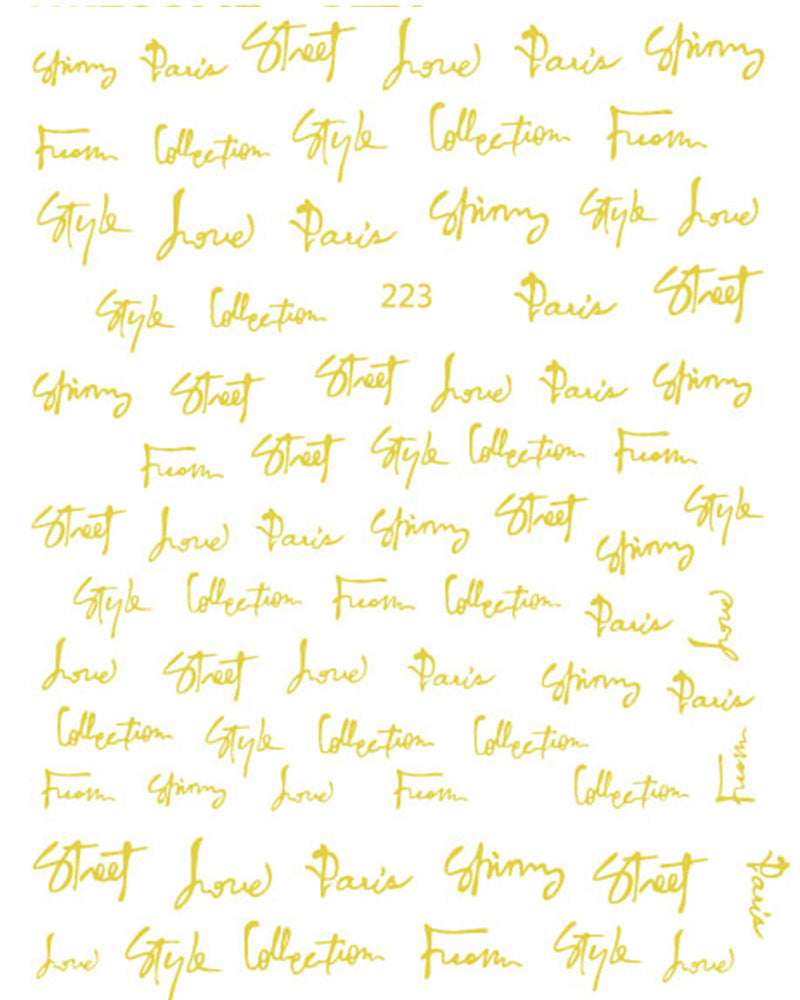 Spinny Paris Street Love Paris Spinny
From Collection Style Collection From
Style Love Paris Spinny Style Love
Style Collection 223 Paris Street
Spinny Street Street Love Paris Spinny
From Street Style Collection From
Street Love Paris Spinny Street Spinny Style
Style Collection From Collection Paris Love
Love Street Love Paris Spinny Paris
Collection Style Collection Collection From
From Spinny Love From Collection
Street Love Paris Spinny Street Paris
Love Style Collection From Style Love